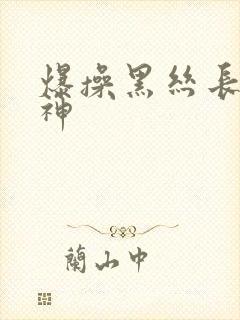 爆操黑丝長
神
蘭山中